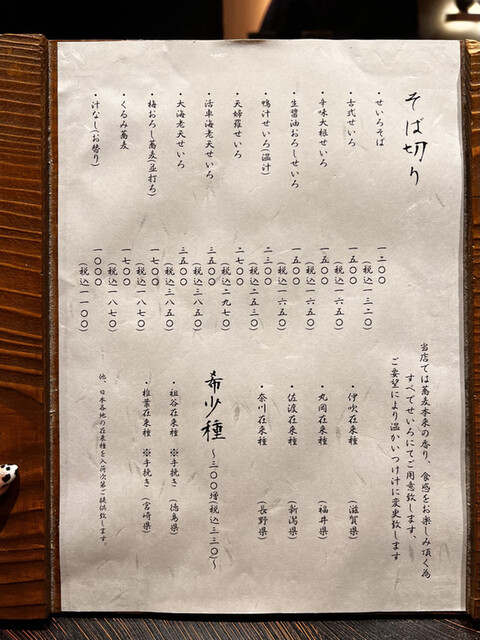 そば切り
・せいろそば 一二〇〇
(税込一三二〇)
・古式せいろ 一五〇〇
(税込一六五〇)
・辛味大根せいろ 一五〇〇
(税込一六五〇)
・生醬油おろしせいろ 一五〇〇
(税込一六五〇)
・鴨汁せいろ(温汁) 二三〇〇
(税込二五三〇)
・天婦羅せいろ 二七〇〇
(税込二九七〇)
・活車海老天せいろ 三五〇〇
(税込三八五〇)
・大海老天せいろ 三五〇〇
(税込三八五〇)
・梅おろし蕎麦(並打ち) 一七〇〇
(税込一八七〇)
・くるみ蕎麦 一七〇〇
(税込一八七〇)
・汁なし(お替り) 一〇〇〇
(税込一一〇〇)
当店では蕎麦本来の香り、食感をお楽しみ頂く為
すべてせいろにてご用意致します、
ご要望により温かいつけ汁に変更致します
・伊吹在来種 (滋賀県)
・丸岡在来種 (福井県)
・佐渡在来種 (新潟県)
・奈川在来種 (長野県)
希少種 〜三〇〇増税込三三〇〜
・祖谷在来種 ※手挽き (徳島県)
・椎葉在来種 ※手挽き (宮崎県)
他、日本各地の在来種を入荷次第ご提供致します。